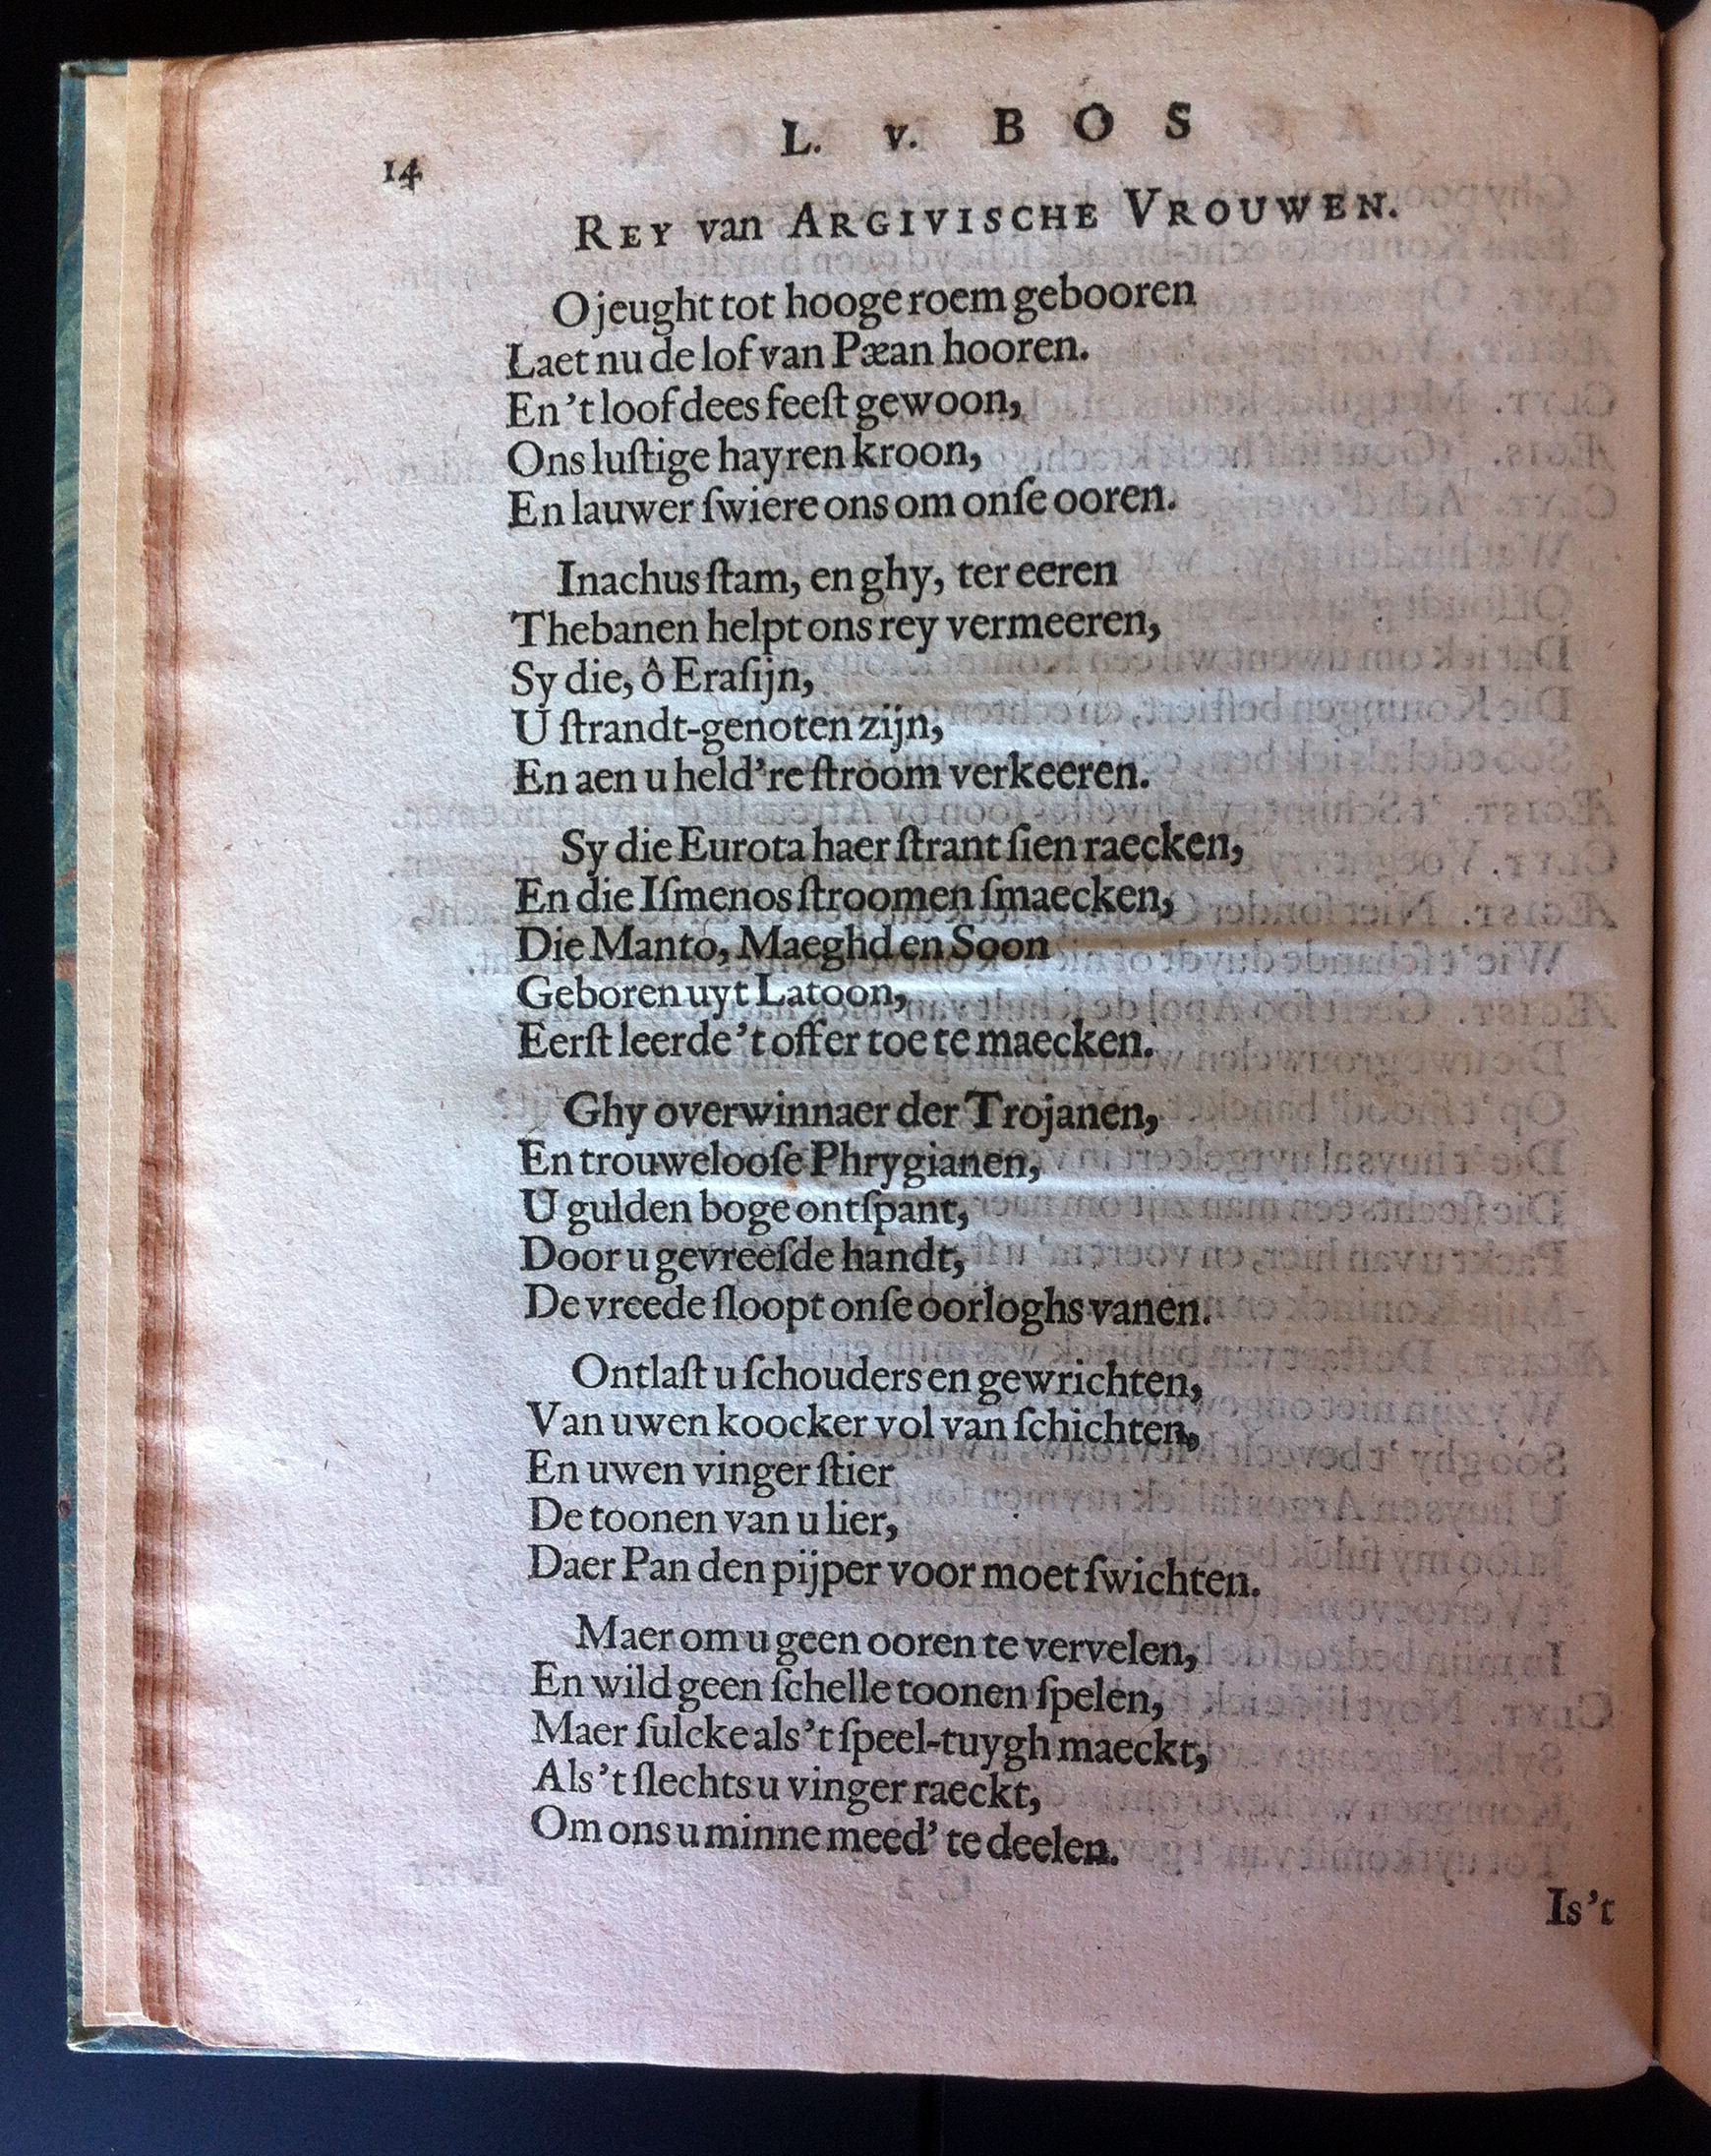 14
L. v. BOS
REY van ARGIVISCHE VROUWEN.
O jeught tot hooge roem gebooren
Laet nu de lof van Pæan hooren.
En 't loof dees feeſt gewoon,
Ons luſtige hayren kroon,
En lauwer ſwiere ons om onſe ooren.
Inachus ſtam, en ghy, ter eeren
Thebanen helpt ons rey vermeeren,
Sy die, ô Eraſijn,
U ſtrandt-genoten zijn,
En aen u held're ſtroom verkeeren.
Sy die Eurota haer ſtrant ſien raecken,
En die Iſmenos ſtroomen ſmaecken,
Die Manto, Maeghd en Soon
Geboren uyt Latoon,
Eerſt leerde 't offer toe te maecken.
Ghy overwinnaer der Trojanen,
En trouwelooſe Phrygianen,
U gulden boge ontſpant,
Door u gevreeſde handt,
De vreede ſloopt onſe oorloghs vanen.
Ontlaſt u ſchouders en gewrichten,
Van uwen koocker vol van ſchichten,
En uwen vinger ſtier
De toonen van u lier,
Daer Pan den pijper voor moet ſwichten.
Maer om u geen ooren te vervelen,
En wild geen ſchelle toonen ſpelen,
Maer ſulcke als 't ſpeel-tuygh maeckt,
Als 't ſlechts u vinger raeckt,
Om ons u minne meed' te deelen.
Is 't